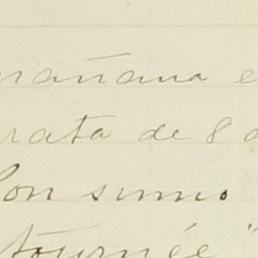 mañana e
rata de 8 d
Con sumo
tournée"